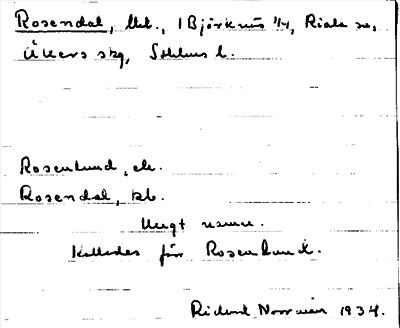 Rosendal, lht., 1 Björknäs 1/4, Riala sn,
Åkers skg, Sthlms l.
Rosenlund, ek.
Rosendal, kb.
Ungt namn.
Kallades för Rosenlund.
Rickard Norrman 1934.